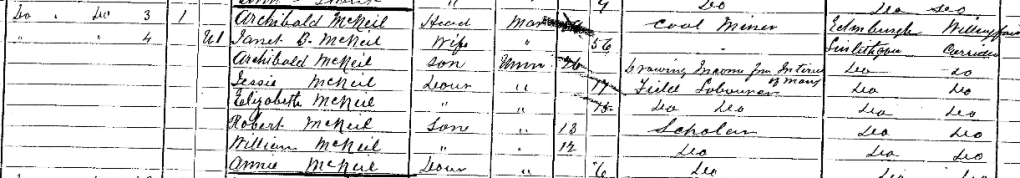 Do " Do 3 1 Archibald McNeil Head Mar Coal Miner Edinburgh
" " 4 Ud Janet B. McNeil Wife " 56 " Linlithgow
Archibald McNeil Son Unm 26 Drawing Income from Interest of Money Do Do
Jessie McNeil Daur " 17 Field Labourer Do Do
Elizabeth McNeil " " 15 Do Do Do Do
Robert McNeil Son " 13 Scholar Do Do
William McNeil " " 12 Do Do Do
Annie McNeil Daur " 6 Do Do Do